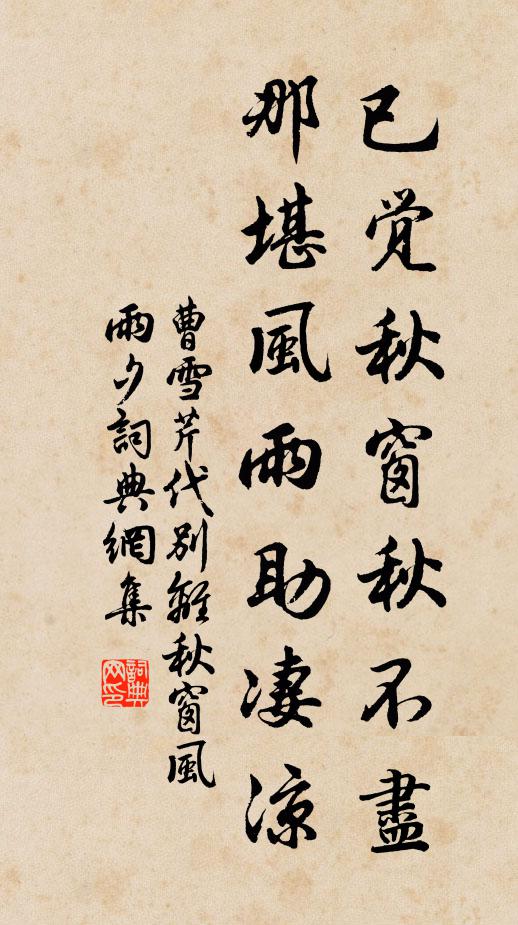 已觉秋窗秋不盡
那堪風雨助凄涼
曹雪芹代别離秋窗風
雨夕詞典網集
詞典网印